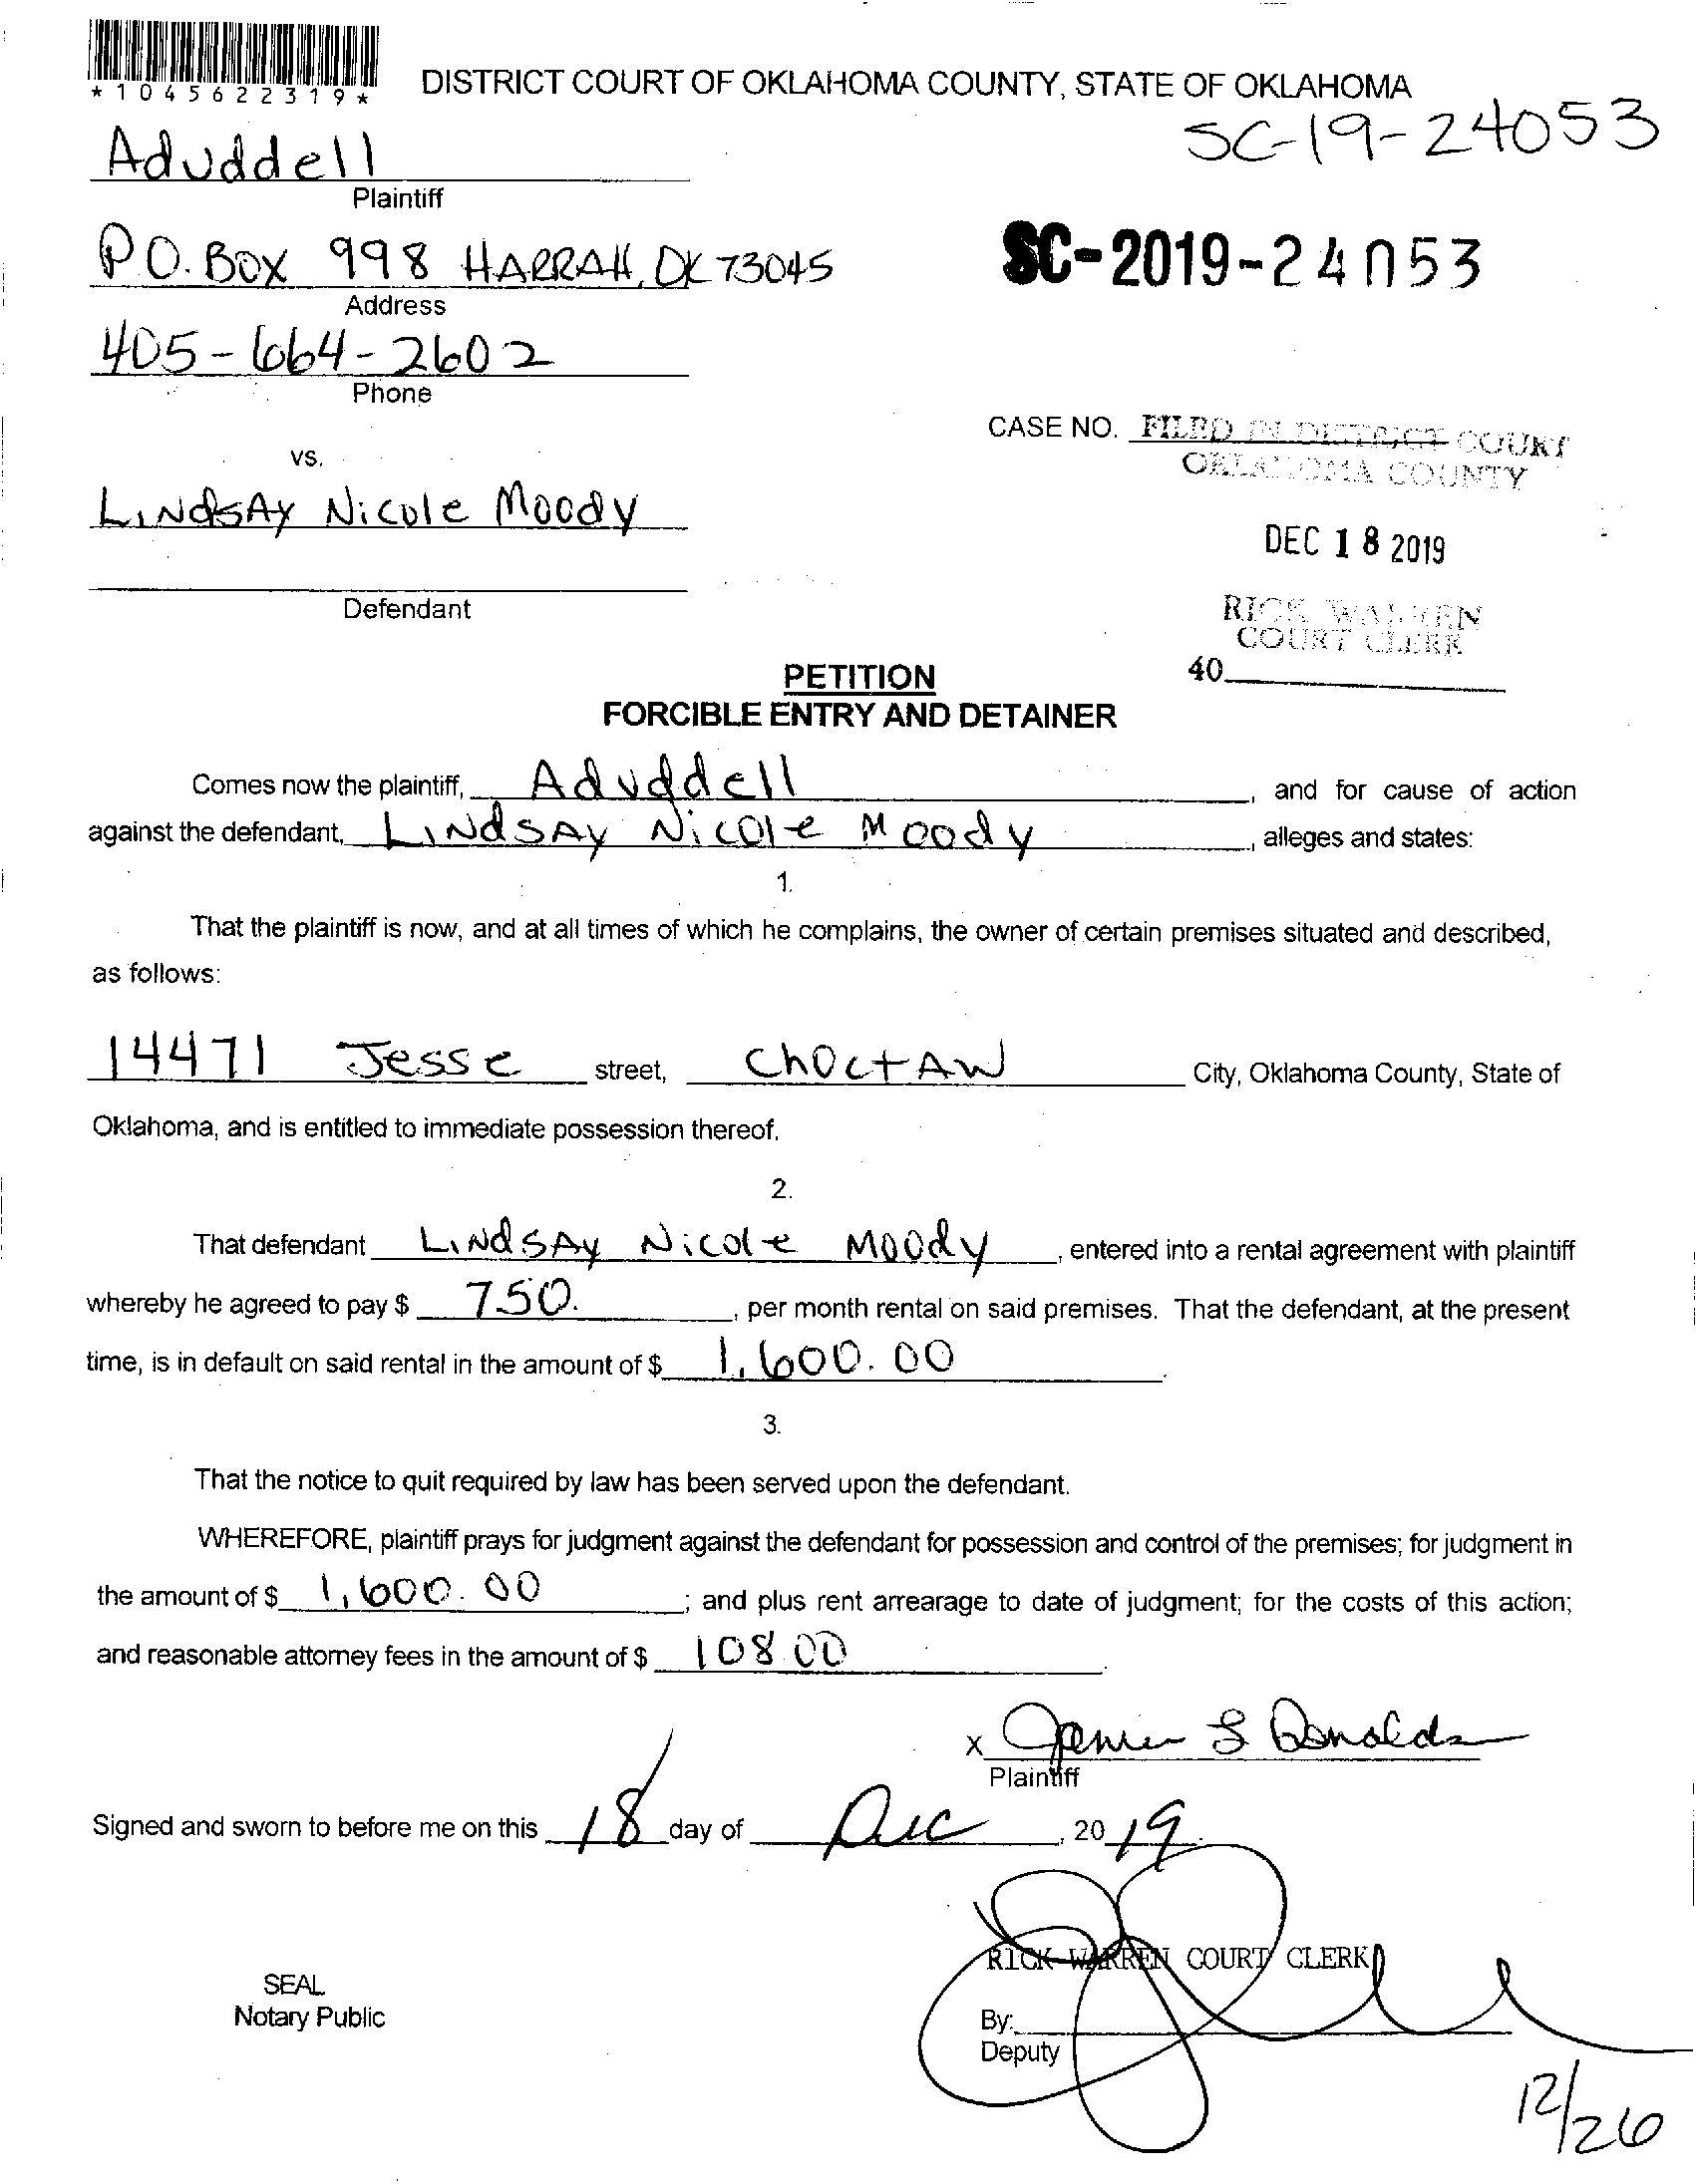 *1045622319*
DISTRICT COURT OF OKLAHOMA COUNTY, STATE OF OKLAHOMA
SC-19-24053
Aduddell
Plaintiff
P.O. Box 998 HARRAH, OK 73045
SC-2019-24053
Address
405-664-2602
Phone
CASE NO. FILED IN DISTRICT COURT
OKLAHOMA COUNTY
vs.
LiNdsAy Nicole Moody
DEC 18 2019
Defendant
RICK WARREN
COURT CLERK
40
PETITION
FORCIBLE ENTRY AND DETAINER
Comes now the plaintiff, Aduddell, and for cause of action
against the defendant, LiNdsAy Nicole Moody, alleges and states:
1.
That the plaintiff is now, and at all times of which he complains, the owner of certain premises situated and described,
as follows:
14471 Jesse street, ChoctAW City, Oklahoma County, State of
Oklahoma, and is entitled to immediate possession thereof.
2.
That defendant LiNdsAy Nicole Moody, entered into a rental agreement with plaintiff
whereby he agreed to pay $ 750., per month rental on said premises. That the defendant, at the present
time, is in default on said rental in the amount of $ 1,600.00.
3.
That the notice to quit required by law has been served upon the defendant.
WHEREFORE, plaintiff prays for judgment against the defendant for possession and control of the premises; for judgment in
the amount of $ 1,600.00; and plus rent arrearage to date of judgment; for the costs of this action;
and reasonable attorney fees in the amount of $ 108.00.
x Donalds
Plaintiff
Signed and sworn to before me on this 18 day of Dec, 2019
RICK WARREN COURT CLERK
SEAL
Notary Public
By:
Deputy
12/26